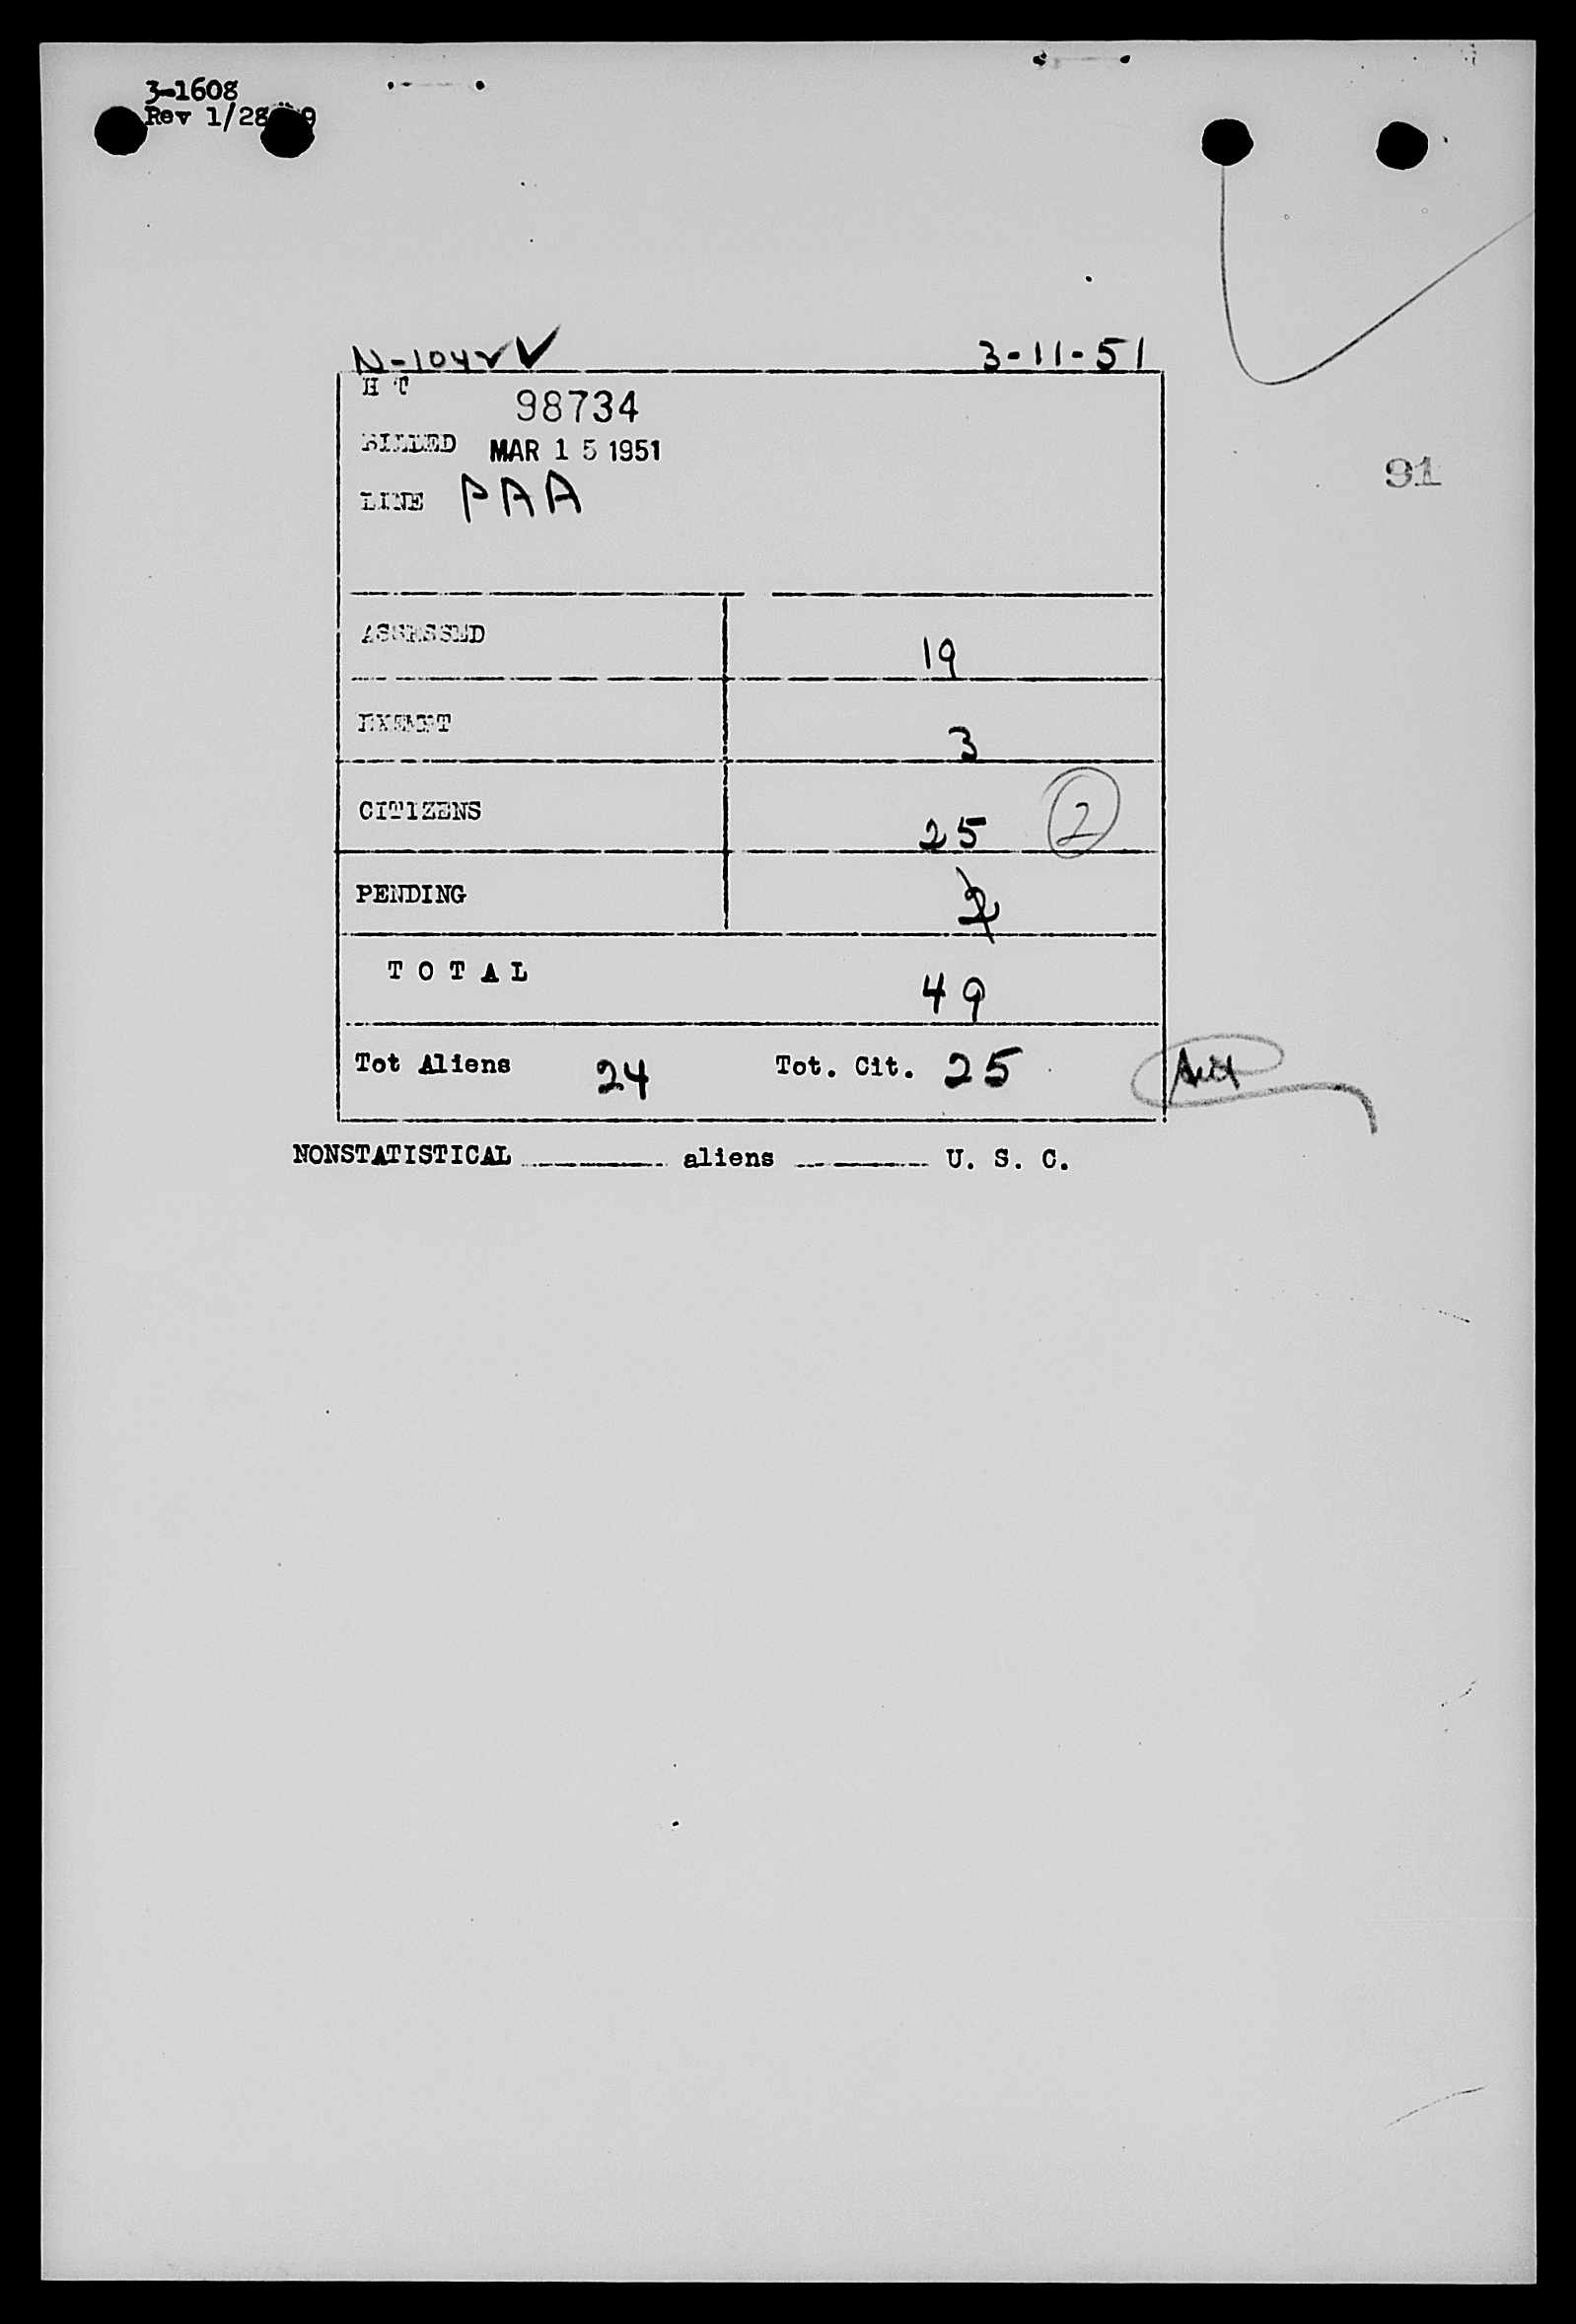 3-1608
Rev 1/28 9
N-1042 ✓ 3-11-51
H T
98734
BILLED MAR 15 1951
91
LINE PAA
ASSESSED 19
EXEMPT 3
CITIZENS 25 2
PENDING 2
TOTAL 49
Tot Aliens 24 Tot. Cit. 25
NONSTATISTICAL ________ aliens ________ U. S. C.